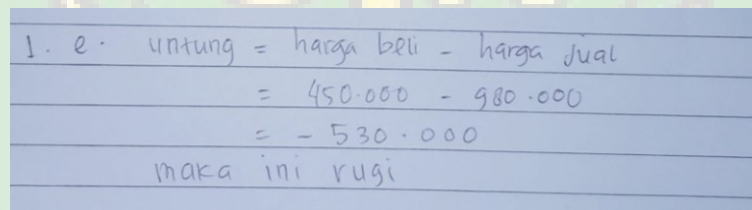 1. e. untung = harga beli - harga jual
= 450.000 - 980.000
= - 530.000
maka ini rugi